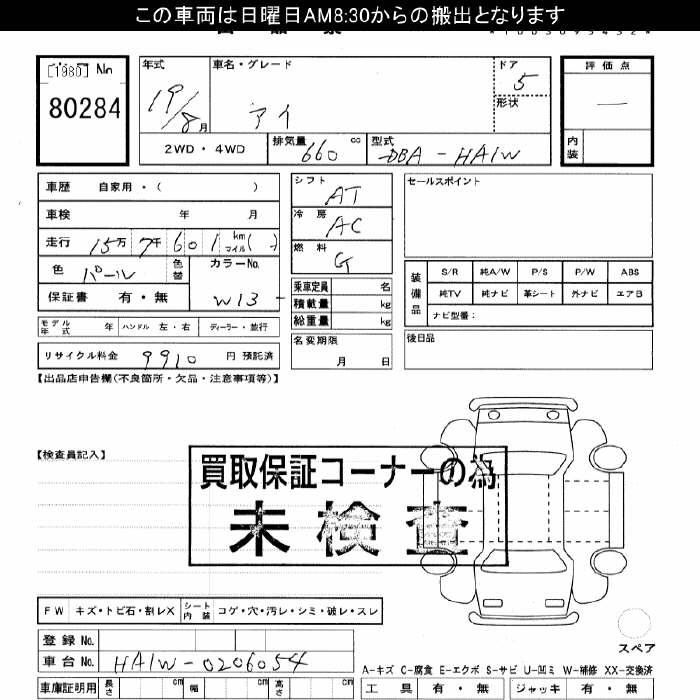 この車両は日曜日AM8:30からの搬出となります
[1980] No
80284
年式
19/8月
車名・グレード
アイ
ドア
5
形状
2WD・4WD
排気量 660 cc
型式 DBA-HA1W
評価点
—
内装
車歴 自家用・( )
車検 年 月
走行 15万7千601 km マイル( )
色 パール
色替
カラーNo.
W13
保証書 有・無
モデル年式 年 ハンドル 左・右 ディーラー・並行
リサイクル料金 9910 円 預託済
シフト AT
冷房 AC
燃料 G
乗車定員 名
積載量 kg
総重量 kg
名変期限
月 日
セールスポイント
装備品
S/R 純A/W P/S P/W ABS
純TV 純ナビ 革シート 外ナビ エアB
ナビ型番:
後日品
【出品店申告欄(不良箇所・欠品・注意事項等)】
【検査員記入】
買取保証コーナーの為
未検査
FW キズ・トビ石・割レX シート内装 コゲ・穴・汚レ・シミ・破レ・スレ
登録No.
車台No. HA1W-0206054
車庫証明用 長さ cm 幅 cm 高さ cm
スペア
A-キズ C-腐食 E-エクボ S-サビ U-凹ミ W-補修 XX-交換済
工具 有・無 ジャッキ 有・無